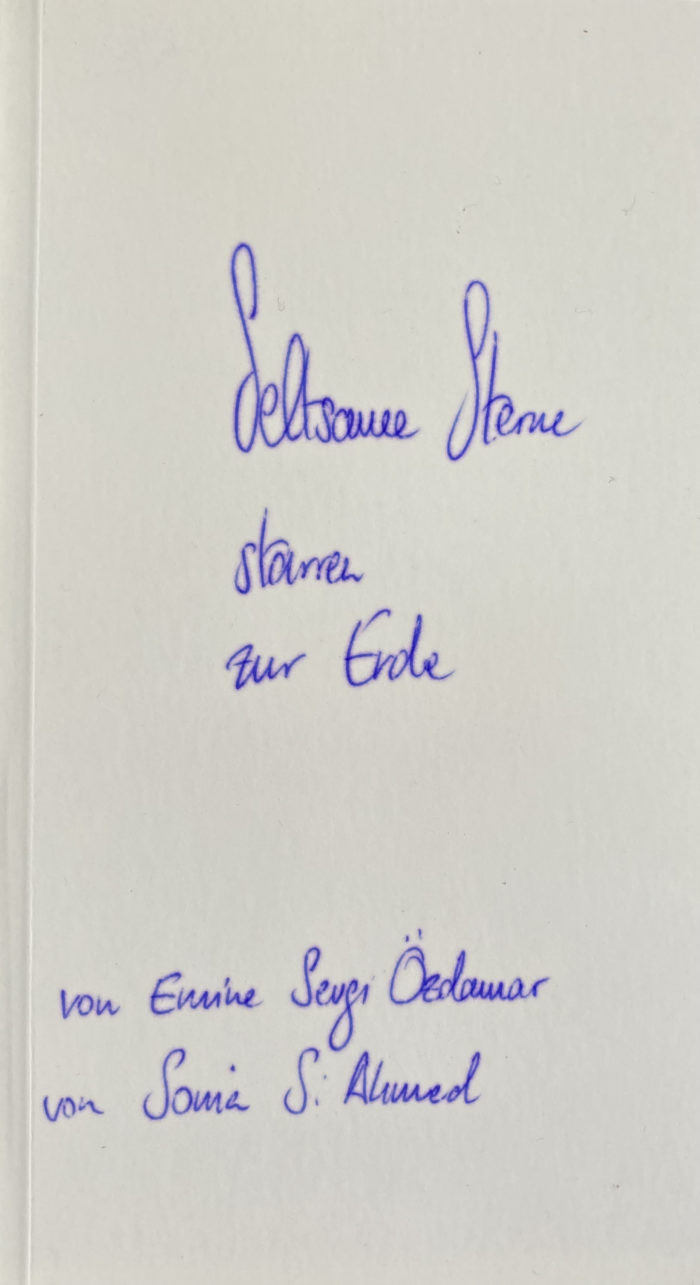 Seltsame Sterne
starren
zur Erde
von Emine Sevgi Özdamar
von Sonia S. Ahmed